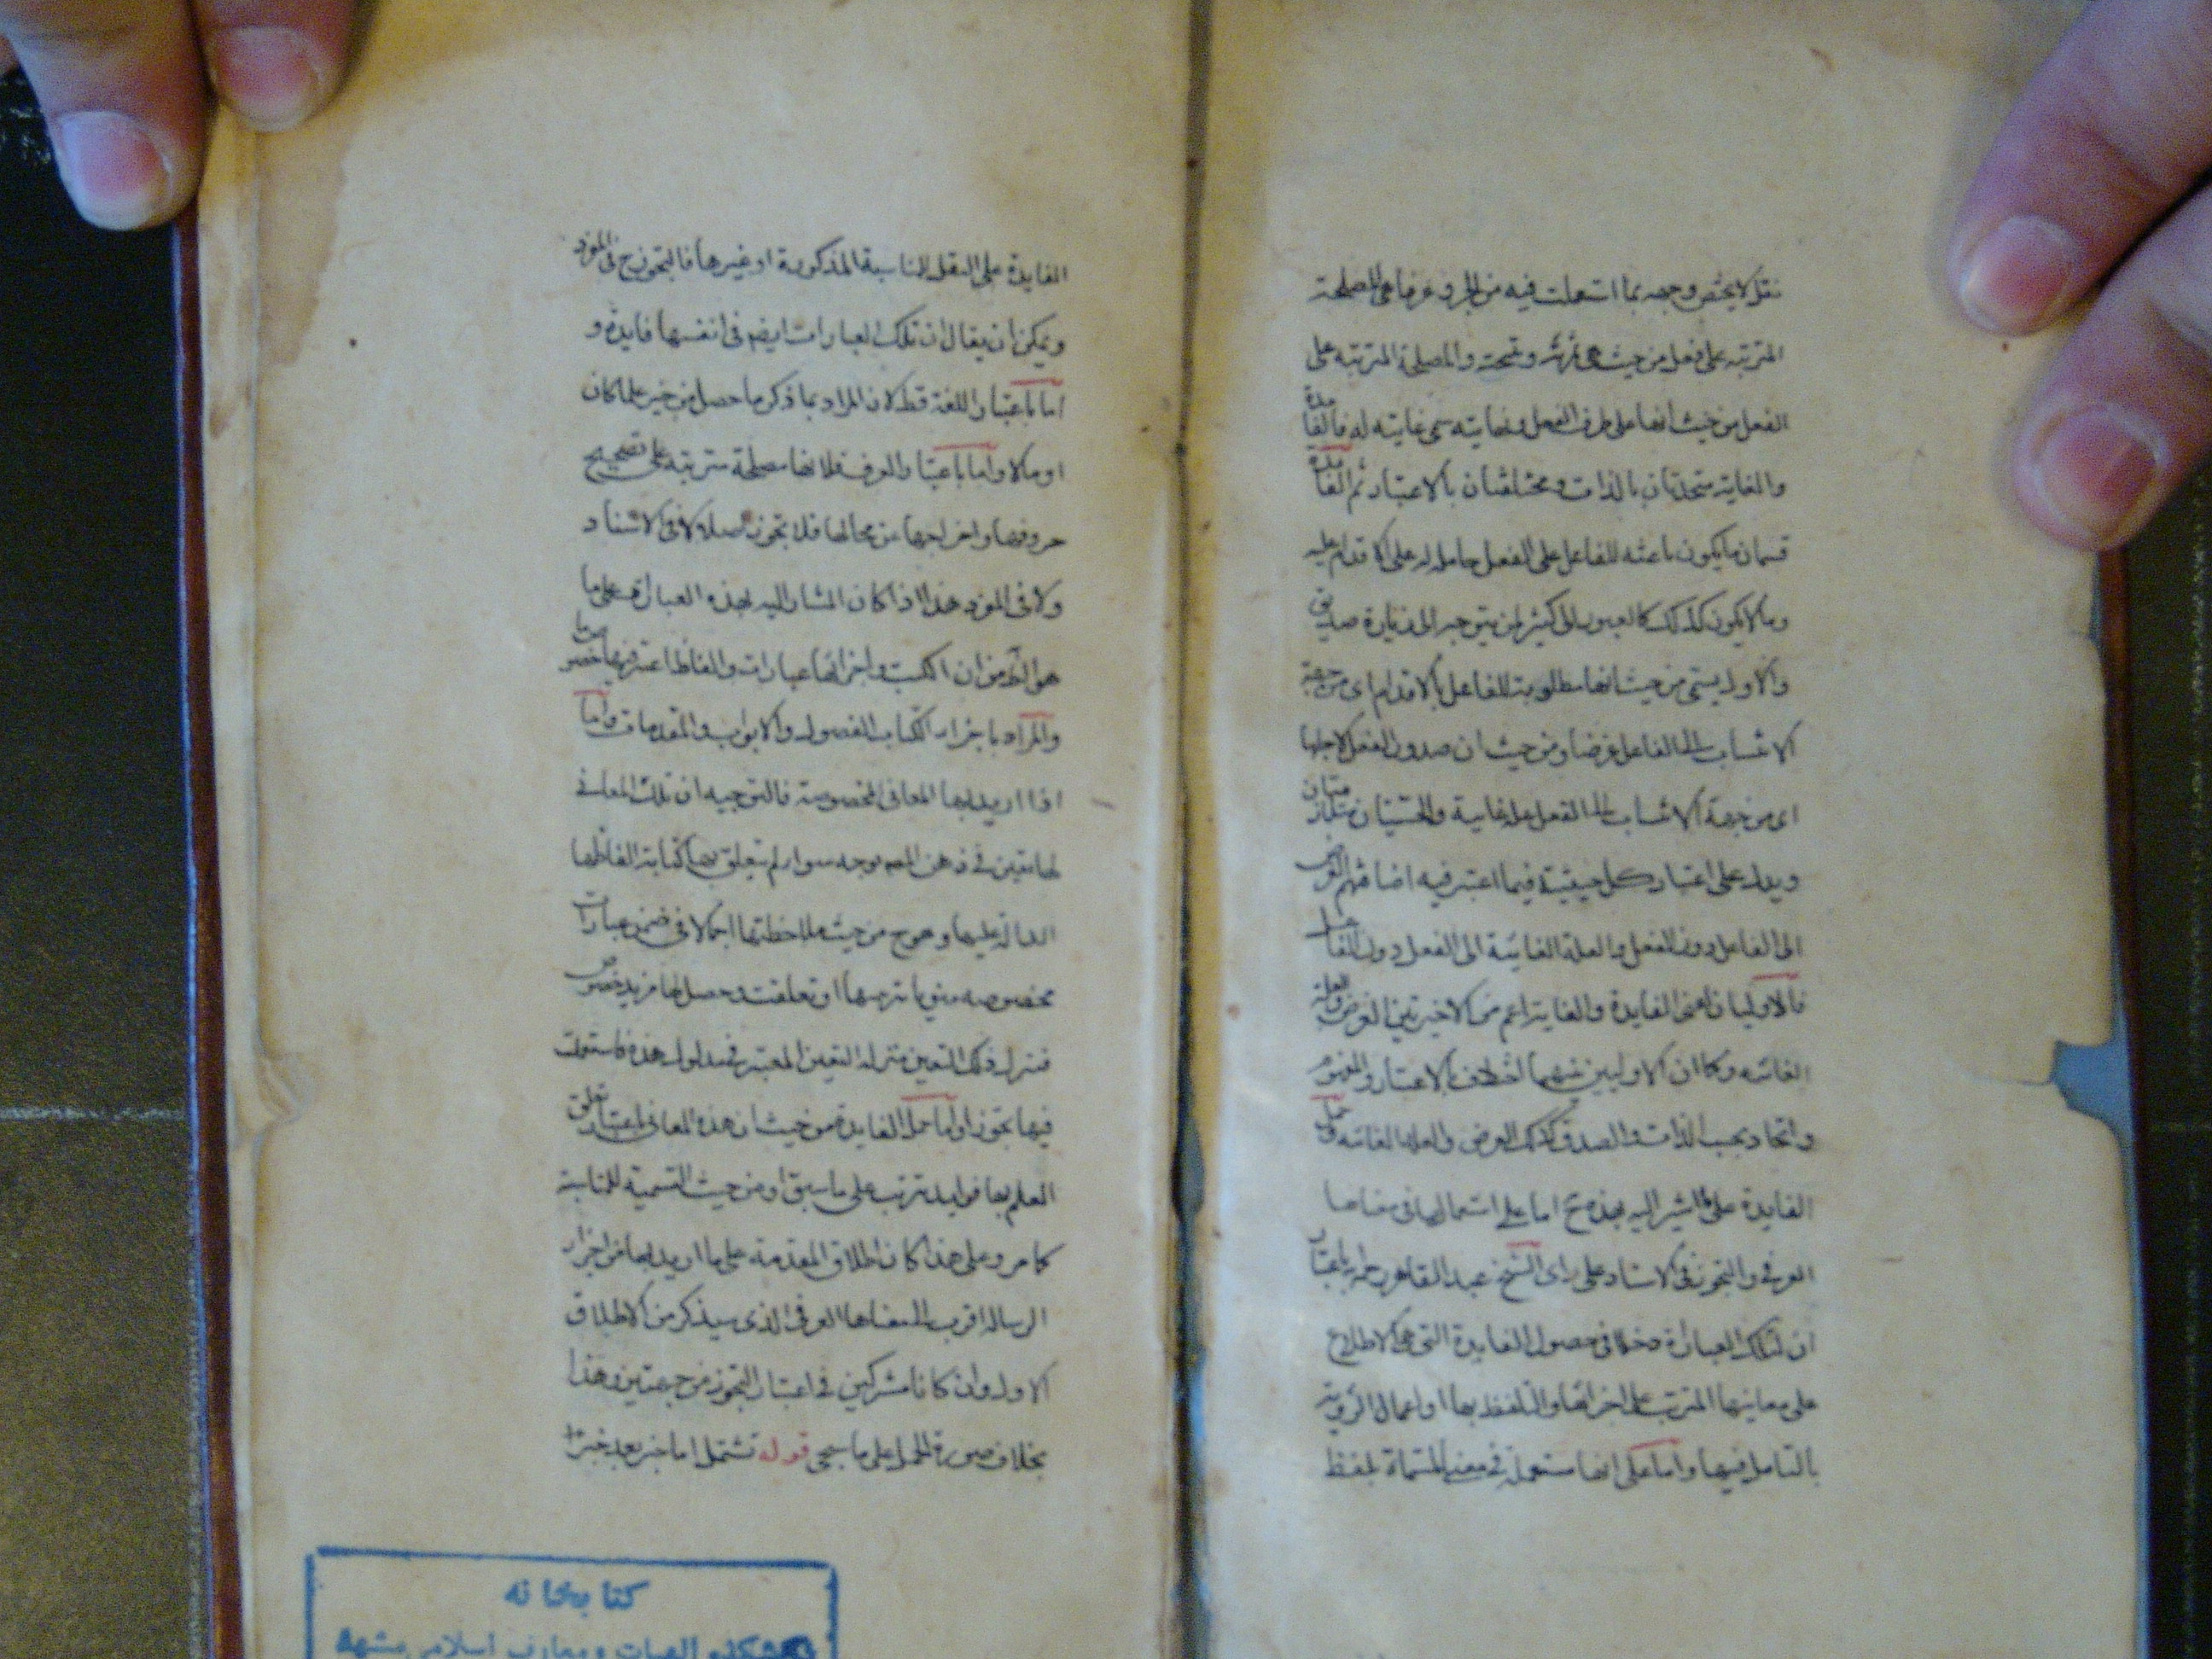 نقل لا يختص وجهه بما استعملت فيه من الجر وعرفا هى المصلحة
المترتبه على فعل من حيث هى ثمرته ونتيجته والمصلحة المترتبه على
الفعل من حيث انها على طرف الفعل ونهايته تسمى غايته له فالفايدة
والغاية متحدتان بالذات ومختلفتان بالاعتبار ثم الفايدة
قسمان ما يكون باعثه للفاعل على الفعل حامله له على الاقدام عليه
وما لا يكون كذلك كالعبور الى كثير لمن يتوجه الى زيارة صديق
والاول يسمى من حيث انها مطلوبة للفاعل بالاقدام اى من جهة
الانتساب الى الفاعل غرضا ومن حيث ان صدور الفعل لاجلها
اى من جهة الانتساب الى الفعل علة غاية والحيثيتان متلازمتان
ويدل على اعتبار كل حيثية فيما اعتبر فيه اضافتهم الغرض
الى الفاعل دون الفعل والعلة الغائية الى الفعل دون الفاعل
فالاوليان اعنى الفايدة والغاية اعم من الاخيرتين الغرض والعلة
الغائيه وكما ان الاوليين بينهما اختلاف بالاعتبار والمفهوم
واتحاد بحسب الذات والصدق كذلك الغرض والعلة الغائيه وحمل
الفايدة على ما اشير اليه بهذه ح اما على استعمالها فى معناها
العرفى والتجوز فى الاسناد على راى الشيخ عبد القاهر رحمه باعتبار
ان لتلك العبارة مدخلا فى حصول الفايدة التى هى الاطلاع
على معانيها المترتب على اجرائها والتلفظ بها او اعمال الروية
بالتامل فيها واما على انها مستعملة فى معنى المسماة بلفظ
الفايدة على النقل للمناسبة المذكورة او غيرها فالتجوز ح فى المفرد
ويمكن ان يقال ان تلك العبارات ايضم فى انفسها فايدة و
اما باعتبار اللغة فقط لان المراد بما ذكر ما حصل من خير علما كان
او مالا واما باعتبار العرف فلانها مصلحة مترتبه على تصحيح
حروفها واخراجها من محالها فلا تجوز اصلا لا فى الاسناد
ولا فى المفرد هذا اذا كان المشار اليه بهذه العبارة على ما
هو الظ من ان الكتب واجزائها عبارات والفاظ اعتبر فيها خصوصها
والمراد باجزاء الكتاب الفصول والابواب والمقدمات واما
اذا اريد بها المعانى المخصوصة فالتوجيه ان تلك المعانى
لها تعين فى ذهن المص بوجه سواء لم تتعلق بها كتابة الفاظها
الدالة عليها وهو ح من حيث ملاحظتها اجمالا فى ضمن عبارات
مخصوصه منويا ترتيبها او تعلقت وحصل لها مزيد خصوص
فنزل ذلك التعين منزلة التعين المعتبر فى مدلول هذه فاستعملت
فيها تجوزا واما حمل الفايدة فمن حيث ان هذه المعانى باعتبار تعلق
العلم بها فوايد ترتب على ما سبق او من حيث التسمية للمناسبة
كما مر وعلى هذا كان اطلاق المقدمة على ما اريد بها من اجزاء
الرسالة اقرب الى معناها العرفى الذى سيذكر من الاطلاق
الاول وان كانا مشتركين فى اعتبار التجوز من جهتين وهذا
بخلاف صورة الحمل على ما سيجى قوله تشتمل اما خبر بعد خبر
كتابخانه
دانشكده الهيات و معارف اسلامى مشهد